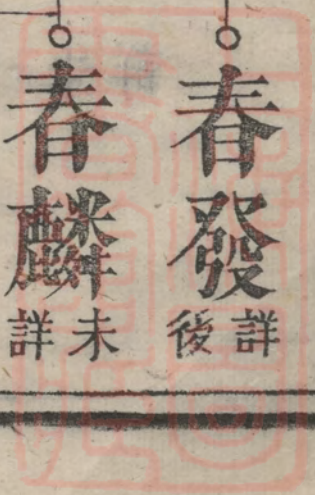 春發 詳後
春麟 未詳